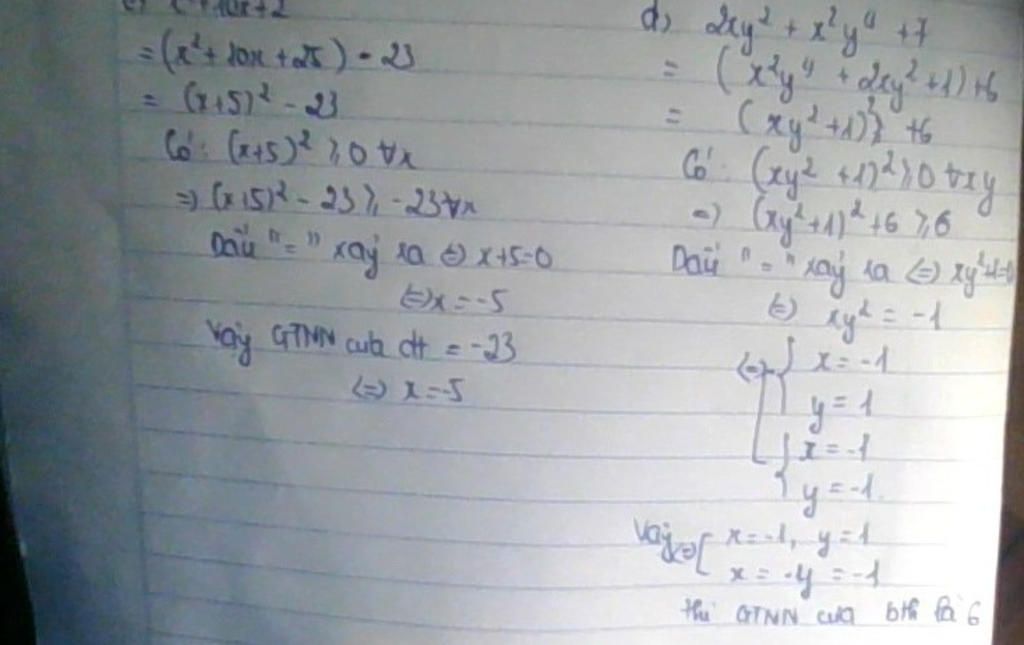 x² + 10x + 2
= (x² + 10x + 25) - 23
= (x+5)² - 23
Có: (x+5)² ≥ 0 ∀x
=> (x+5)² - 23 ≥ -23 ∀x
Dấu "=" xảy ra <=> x+5=0
<=> x = -5
Vậy GTNN của đt = -23
<=> x = -5
d) 2xy² + x²y⁴ + 7
= (x²y⁴ + 2xy² + 1) + 6
= (xy² + 1)² + 6
Có: (xy² + 1)² ≥ 0 ∀xy
=> (xy² + 1)² + 6 ≥ 6
Dấu "=" xảy ra <=> xy²+1=0
<=> xy² = -1
<=> x = -1
y = 1
x = -1
y = -1
Vậy <=> [ x = -1, y = 1
x = -y = -1
thì GTNN của bth là 6